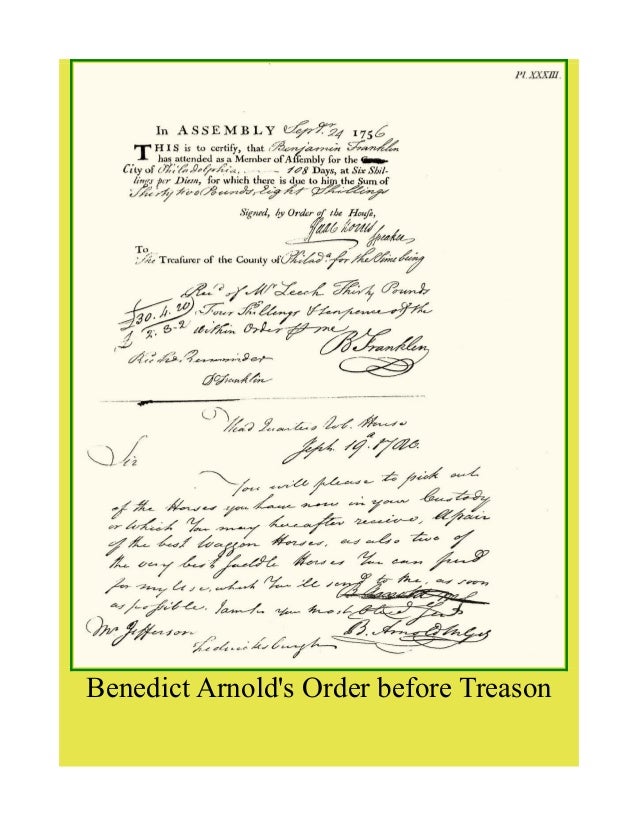 Pl. XXXIII.
In ASSEMBLY Septr. 24 1756
THIS is to certify, that Benjamin Franklin
has attended as a Member of Assembly for the
City of Philadelphia, 108 Days, at Six Shil-
lings per Diem, for which there is due to him the Sum of
Thirty two Pounds, Eight Shillings
Signed, by Order of the House,
Isaac Norris Speaker
To
The Treasurer of the County of Philada. for the Time being
Recd. of Mr Leech Thirty Pounds
£30.4.20 Four Shillings & tenpence of the
£2.3.2 within Order pr me
B Franklin
Recd. the Remainder
B Franklin
Head Quarters Rob. House
Septr. 19th. 1780.
Sir
You will please to pick out
of the Horses you have now in your Custody
or which You may hereafter receive, A pair
of the best Waggon Horses, as also two of
the very best saddle Horses You can find
for my Use, which You'll send to me, as soon
as possible. I am Sir Your most Obed Serv
Mr Jefferson
B. Arnold M. Gen
Fredricksburgh
Benedict Arnold's Order before Treason